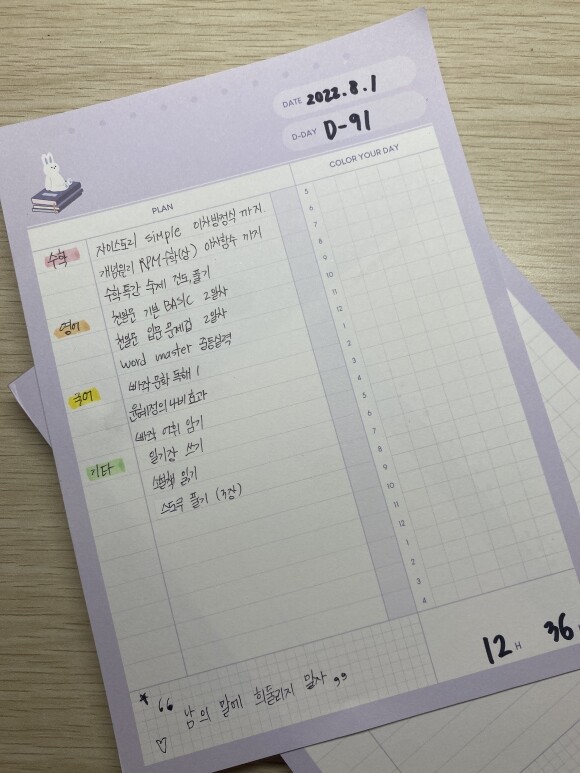 DATE 2022.8.1
D-DAY D-91
PLAN
COLOR YOUR DAY
수학 자이스토리 simple 이차방정식 까지.
개념원리 RPM 수학(상) 이차함수 까지
수학특강 숙제 진도, 풀기
영어 천일문 기본 BASIC 2일차
천일문 입문 문제집 2일차
word master 중등실력
국어 빠작 문학 독해 1
윤혜정의 나비효과
빠작 어휘 암기
기타 일기장 쓰기
소설책 읽기
스도쿠 풀기 (3장)
5
6
7
8
9
10
11
12
1
2
3
4
5
6
7
8
9
10
11
12
1
2
3
4
12 H 36
★ “ 남의 말에 휘둘리지 말자 ”
♡